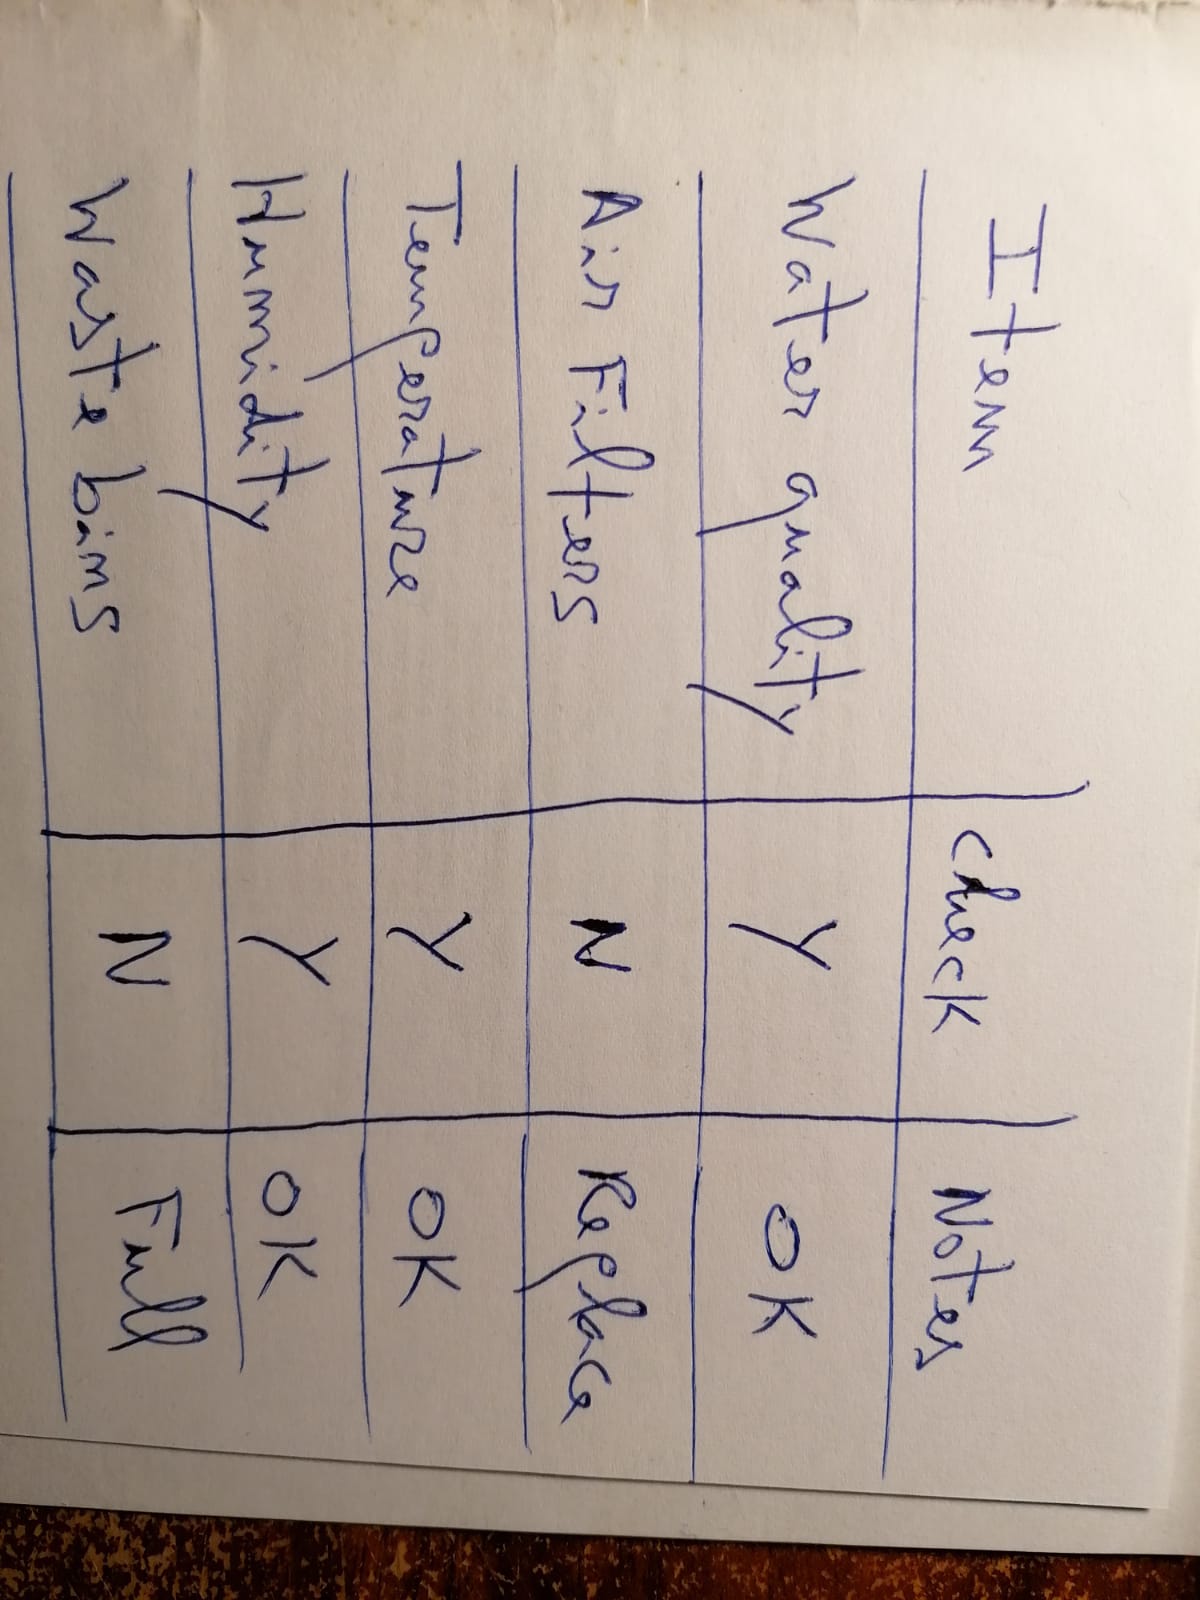 Item check Notes
Water quality Y OK
Air Filters N Replace
Temperature Y OK
Humidity Y OK
Waste bins N Full